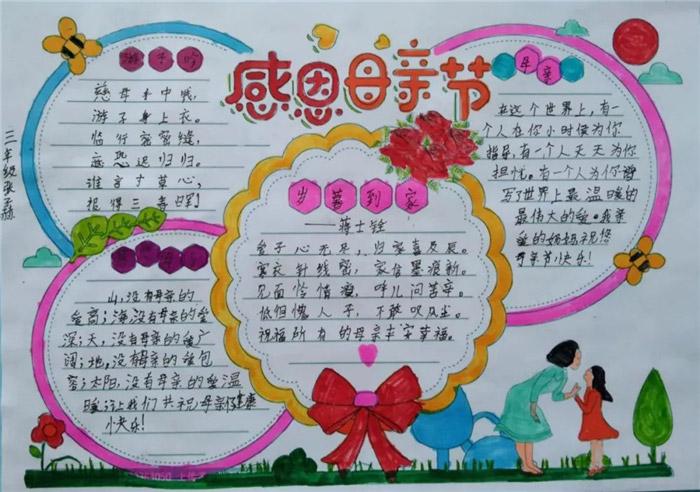 感恩母亲节
三年级
游子吟
慈母手中线，
游子身上衣。
临行密密缝，
意恐迟归归。
谁言寸草心，
报得三春晖！
母亲
在这个世界上，有一
个人在你小时候为你
指导，有一个人天天为你
担忧，有一个人为你谱
写世界上最温暖的
最伟大的爱。我亲
爱的妈妈祝您
母亲节快乐！
岁暮到家
——蒋士铨
爱子心无尽，归家喜及辰。
寒衣针线密，家信墨痕新。
见面怜情瘦，呼儿问苦辛。
低徊愧人子，不敢叹风尘。
祝福所有的母亲幸福。
山，没有母亲的
爱高；海，没有母亲的爱
深；天，没有母亲的爱广
阔；地，没有母亲的爱包
容；太阳，没有母亲的爱温
暖；让我们共祝母亲健康
快乐！